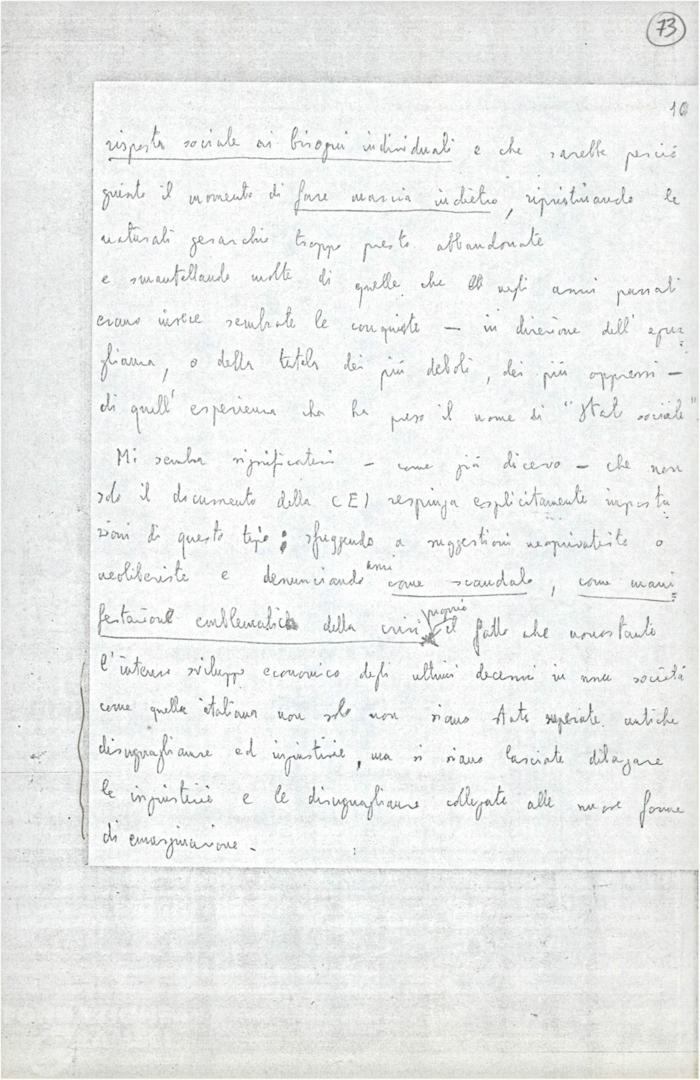 73
10
risposta sociale ai bisogni individuali e che sarebbe perciò
giunto il momento di fare marcia indietro, ripristinando le
naturali gerarchie troppo presto abbandonate
e smantellando molte di quelle che negli anni passati
erano invece sembrate le conquiste – in direzione dell' egua
glianza, o della tutela dei più deboli, dei più oppressi –
di quell' esperienza che ha preso il nome di "Stato sociale".
Mi sembra significativo – come già dicevo – che non
solo il documento della CEI respinga esplicitamente imposta
zioni di questo tipo; sfuggendo a suggestioni neoprivatiste o
neoliberiste e denunciando anzi come scandalo, come mani
festazione emblematica della crisi proprio il fatto che nonostante
l'intenso sviluppo economico degli ultimi decenni in una società
come quella italiana non solo non siano state superate antiche
disuguaglianze ed ingiustizie, ma si siano lasciate dilagare
le ingiustizie e le disuguaglianze collegate alle nuove forme
di emarginazione.